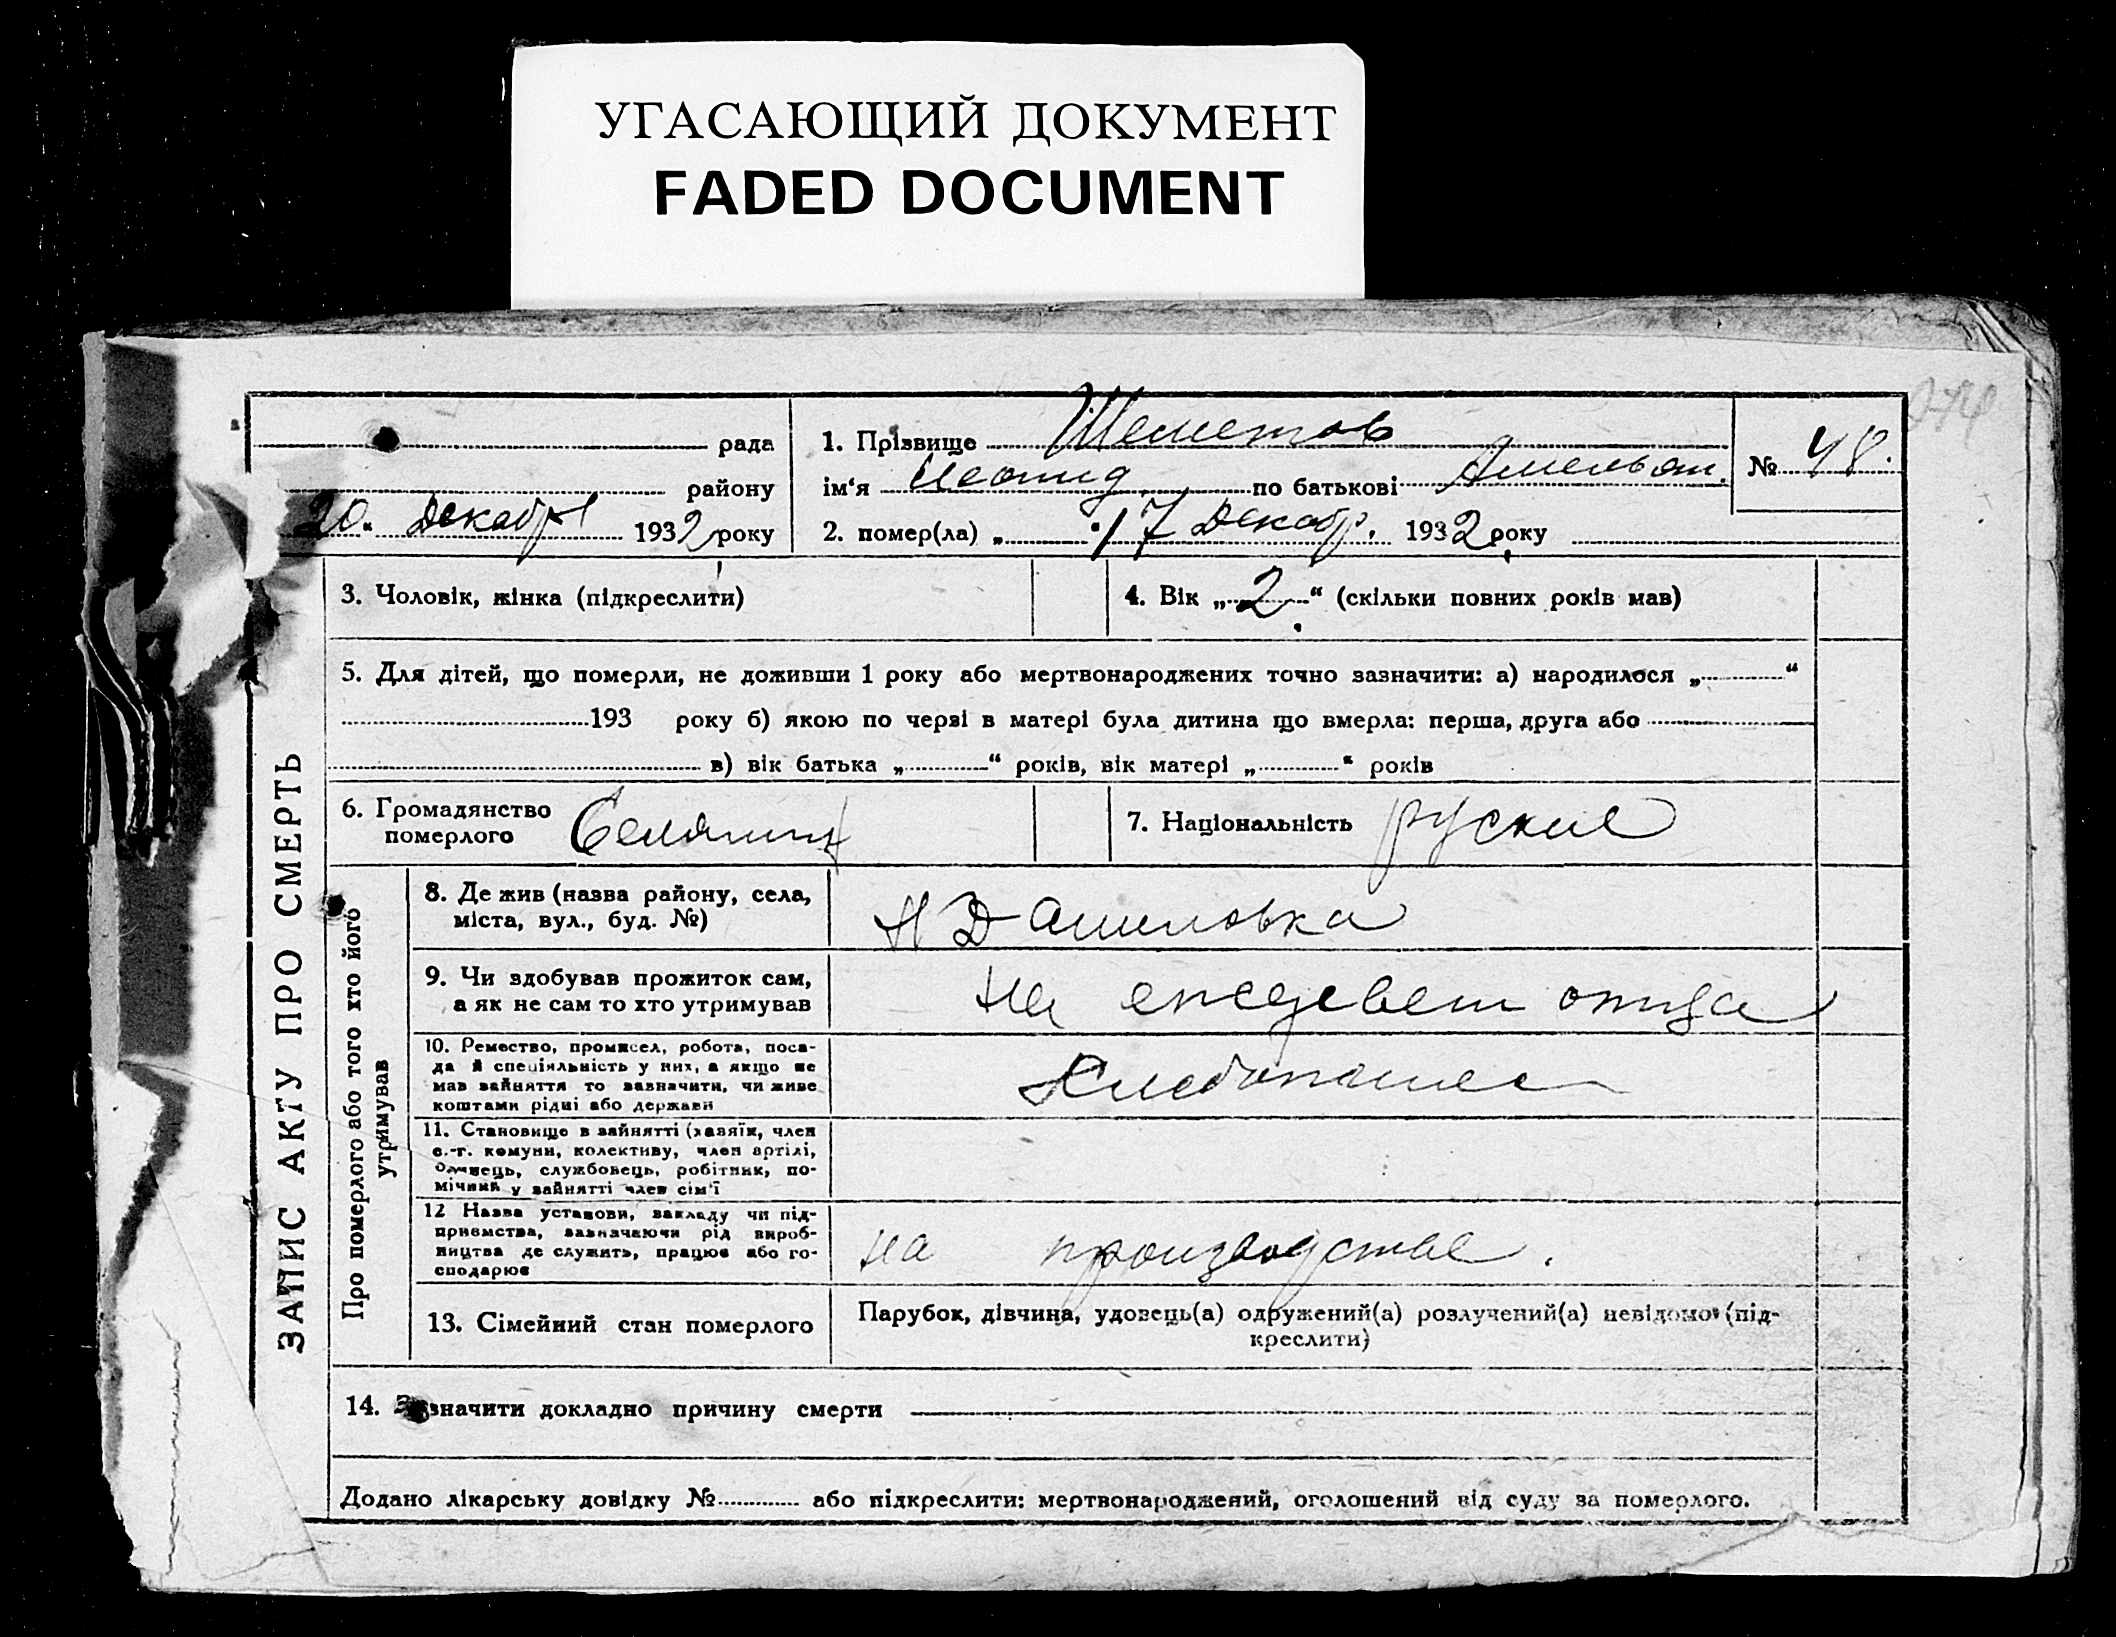 УГАСАЮЩИЙ ДОКУМЕНТ
FADED DOCUMENT
274
рада
району
20. Декабр 1932 року
1. Прізвище Шеметов
ім'я Леонид по батькові Амельян.
2. помер(ла) „ 17 Декабр. 1932 року
№ 48.
3. Чоловік, жінка (підкреслити)
4. Вік „2“ (скільки повних років мав)
5. Для дітей, що померли, не доживши 1 року або мертвонароджених точно зазначити: а) народилося „ “
193 року б) якою по черзі в матері була дитина що вмерла: перша, друга або
в) вік батька „ “ років, вік матері „ “ років
6. Громадянство
померлого Селянин
7. Національність руские
ЗАПИС АКТУ ПРО СМЕРТЬ
Про померлого або того хто його
утримував
8. Де жив (назва району, села,
міста, вул., буд. №)
Н Даниловка
9. Чи здобував прожиток сам,
а як не сам то хто утримував
На отца
10. Ремество, промисел, робота, поса-
да й спеціяльність у них, а якщо не
мав зайняття то зазначити, чи живе
коштами рідні або держави
Хлебопашес
11. Становище в зайнятті (хазяїн, член
с.-г. комуни, колективу, член артілі,
одинець, службовець, робітник, по-
мічний у зайнятті член сім'ї
12 Назва установи, закладу чи під-
приємства, зазначаючи рід вироб-
ництва де служить, працює або го-
сподарює
на производстве.
13. Сімейний стан померлого
Парубок, дівчина, удовець(а) одружений(а) розлучений(а) невідомо (під-
креслити)
14. Зазначити докладно причину смерти
Додано лікарську довідку № або підкреслити: мертвонароджений, оголошений від суду за померлого.